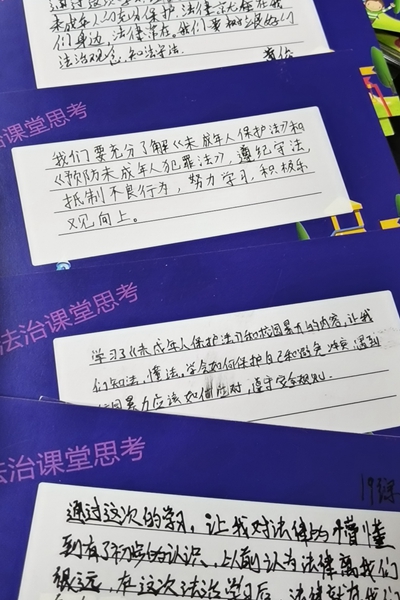 通过这次
未成年人的保护,法律就在我
们身边,法律常在。我们要树立良好的
法治观念,知法守法。
治课堂思考
我们要充分了解《未成年人保护法》和
《预防未成年人犯罪法》,遵纪守法,
抵制不良行为,努力学习,积极乐
观向上。
法治课堂思考
学习了《未成年人保护法》和校园暴力的内容,让我
们知法,懂法,学会如何保护自己和避免冲突,遇到
校园暴力应该如何应对,遵守安全规则.
法治课堂思考
通过这次的学习,让我对法律从懵懂
到有了初步的认识、以前认为法律离我们
很远,在这次法治学习后,法律就在我们